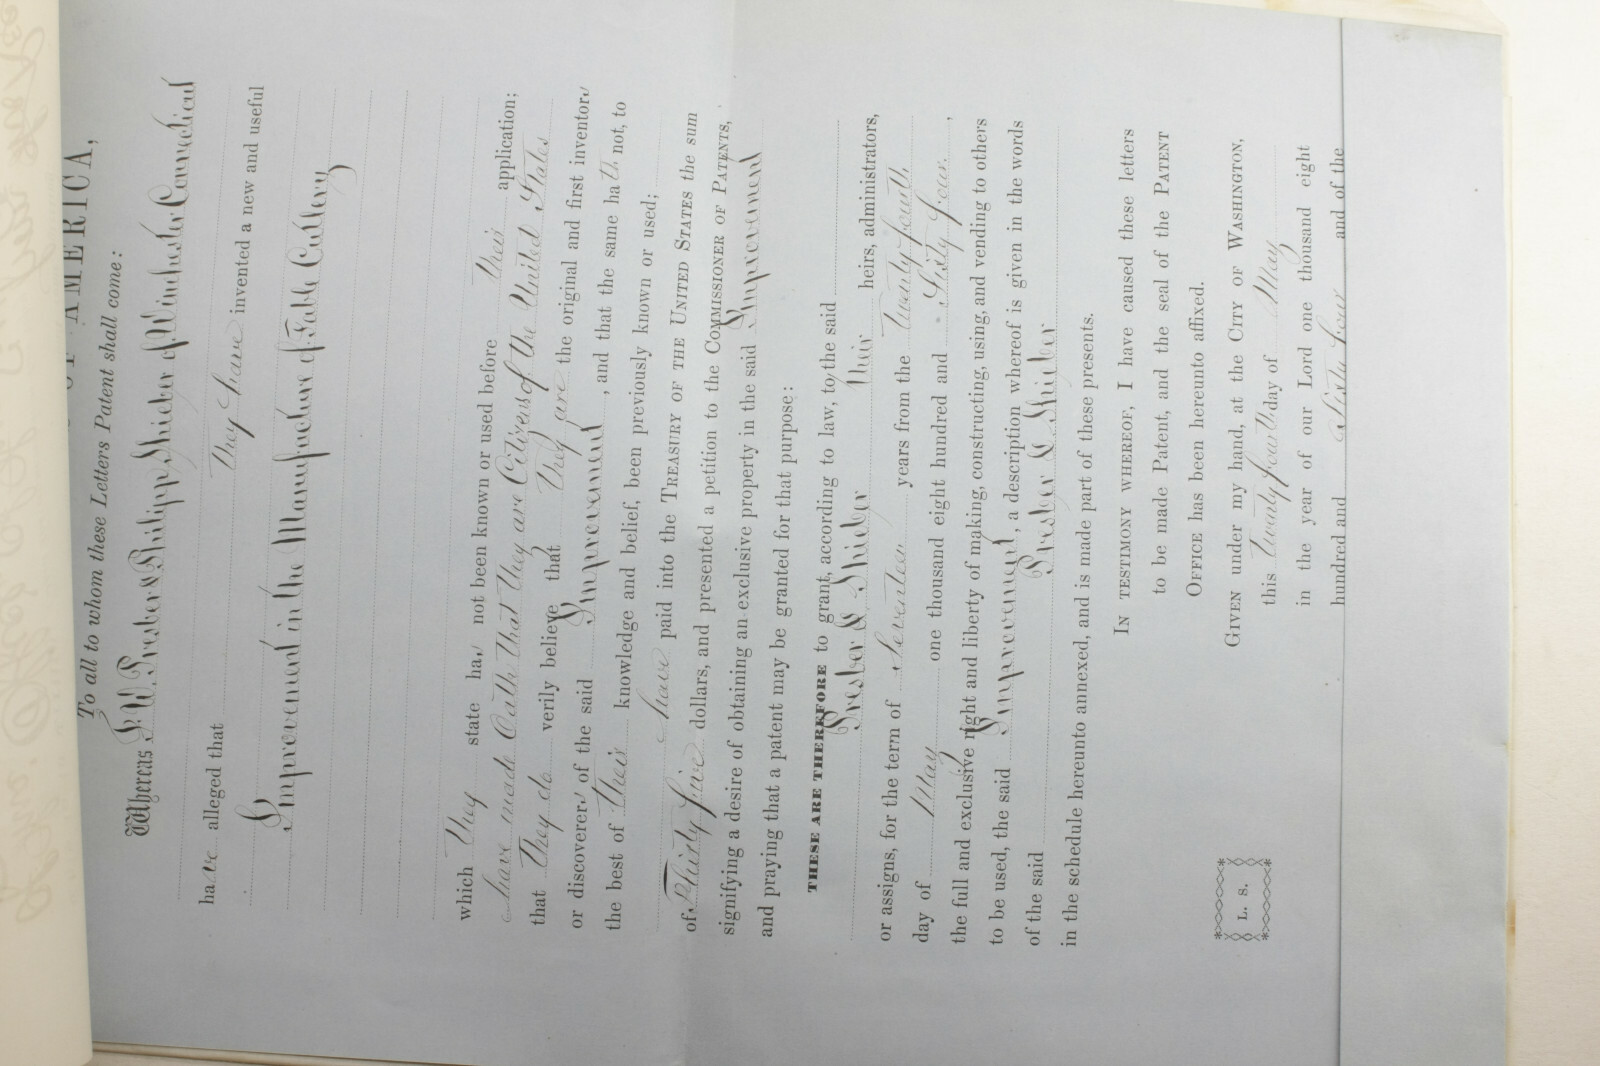 OF AMERICA,
To all to whom these Letters Patent shall come:
Whereas P. W. Presber & Philipp Shieber of Winchester Connecticut
have alleged that They have invented a new and useful
Improvement in the Manufacture of Table Cutlery
which They state ha not been known or used before Their application;
have made Oath that they are Citizens of the United States
that They do verily believe that They are the original and first inventors
or discoverers of the said Improvement, and that the same hath not, to
the best of Their knowledge and belief, been previously known or used;
have paid into the TREASURY OF THE UNITED STATES the sum
of Thirty five dollars, and presented a petition to the COMMISSIONER OF PATENTS,
signifying a desire of obtaining an exclusive property in the said Improvement
and praying that a patent may be granted for that purpose:
THESE ARE THEREFORE to grant, according to law, to the said
Presber & Shieber Their heirs, administrators,
or assigns, for the term of Seventeen years from the Twenty fourth
day of May one thousand eight hundred and Sixty four,
the full and exclusive right and liberty of making, constructing, using, and vending to others
to be used, the said Improvement, a description whereof is given in the words
of the said Presber & Shieber
in the schedule hereunto annexed, and is made part of these presents.
IN TESTIMONY WHEREOF, I have caused these letters
to be made Patent, and the seal of the PATENT
OFFICE has been hereunto affixed.
GIVEN under my hand, at the CITY OF WASHINGTON,
this Twenty fourth day of May
in the year of our Lord one thousand eight
hundred and Sixty four and of the
L. S.